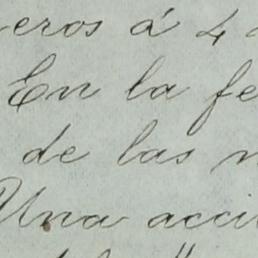 eros á 4
En la fe
de las
Una acci